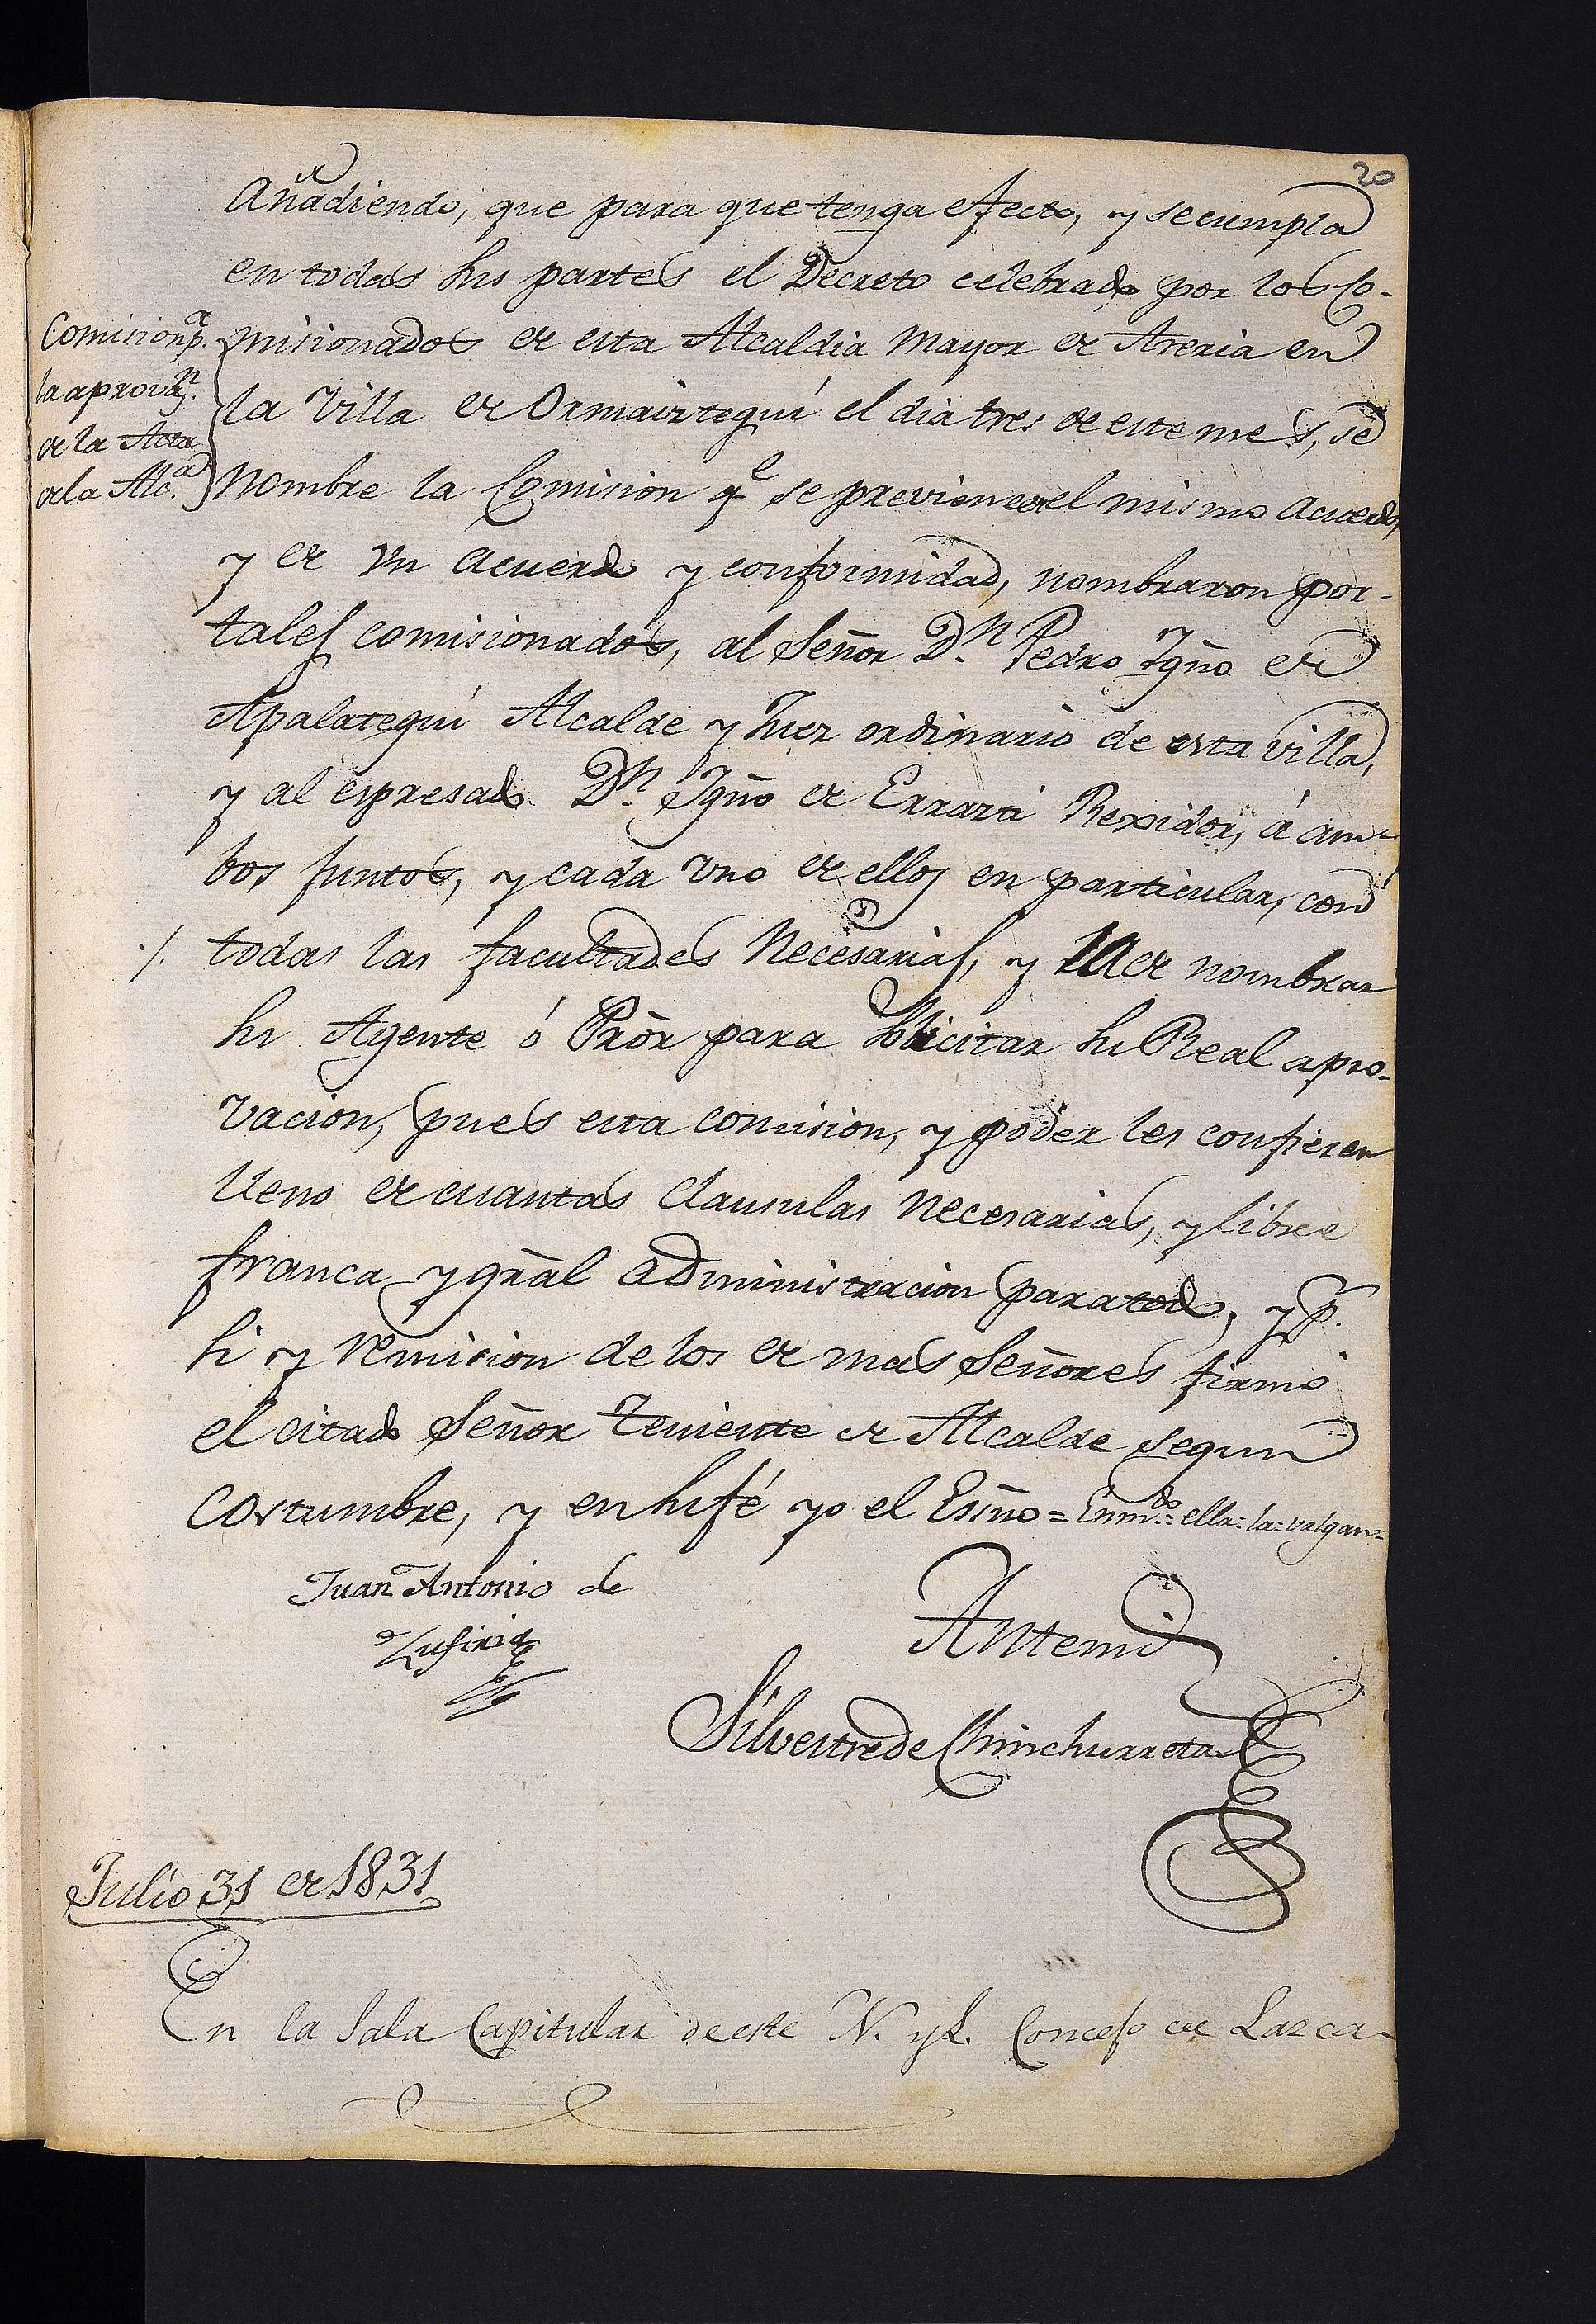 20
Añadiendo, que para que tenga efecto, y se cumpla
en todas sus partes el Decreto celebrado por los Co-
misionados de esta Alcaldia Mayor de Areria en
la Villa de Ormaiztegui el dia tres de este mes, se
Nombre la Comision qe se previene en el mismo acuerdo,
y de un acuerdo y conformidad, nombraron por
tales comisionados, al Señor Dn. Pedro Igño de
Apalategui Alcalde y Juez ordinario de esta villa,
y al espresado Dn. Igño de Errazti Rexidor, á am-
bos juntos, y cada uno de ellos en particular, con
./. todas las facultades Necesarias, y la de nombrar
su Agente ó Pror para solicitar su Real apro-
vacion, pues esta comision, y poder les confieren
lleno de cuantas clausulas necesarias, y libre
franca y gral administracion para todo, y pr.
si y remision de los de mas Señores firmó
el citado Señor Teniente de Alcalde segun
costumbre, y en su fé yo el Esño = Enmdo.: ella: la: valgan=
Comision pa.
la aprovan.
de la Acta
de la Alca.
Juan Antonio de
Antemi
Silvestre de Chinchurreta
Julio 31 de 1831
En la Sala Capitular de este N. y L. Concejo de Lazca-